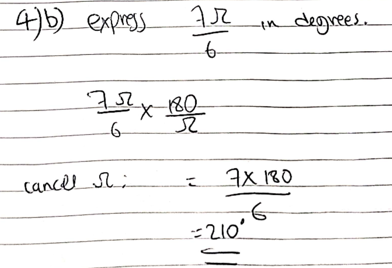 4)b) express 7π/6 in degrees.
7π/6 × 180/π
cancel π: = 7×180/6
=210°